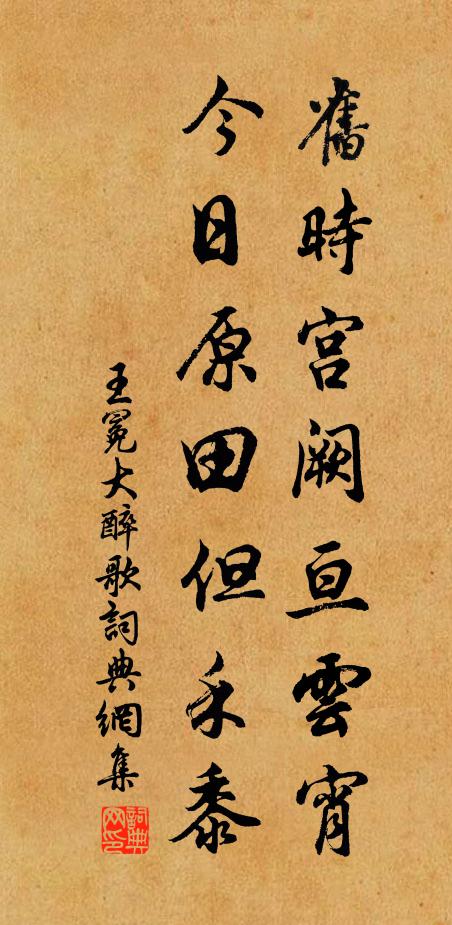 舊時宮闕亘雲宵
今日原田但禾黍
王冕大醉歌詞典網集
詞典网印